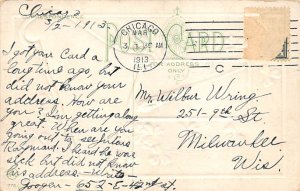 Chicago
3/2 - 1913
I got your Card a
long time ago, but
did not know your
address. How are
you? I am getting along
great. When are you
going out to see
Raymond. I heard he was
sick but did not know
his address - Write -
652 - E - 42nd st.
CHICAGO
MAR
3
AM
1913
ILL
CARD
ADDRESS
ONLY
Mr. Wilbur Wring
251 - 9th St
Milwaukee
Wis.